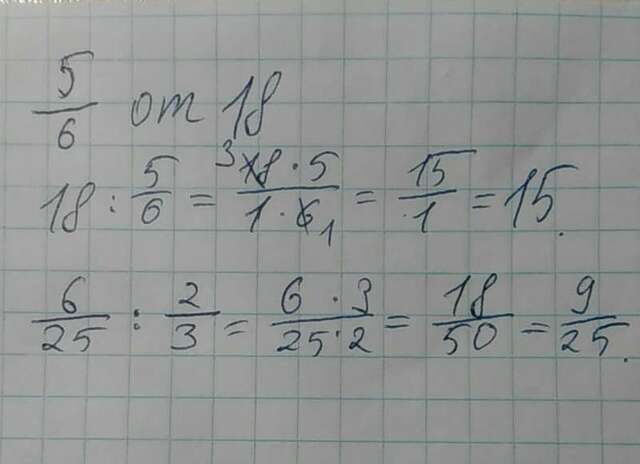 5/6 от 18
18 : 5/6 = 3 18 · 5 / 1 · 6 1 = 15/1 = 15.
6/25 : 2/3 = 6 · 3 / 25 · 2 = 18/50 = 9/25.